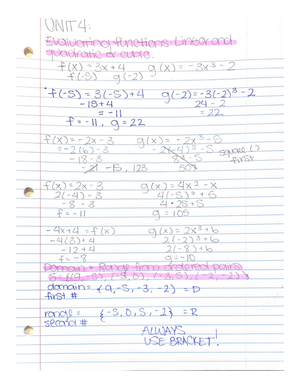 UNIT 4:
Evaluating Functions: Linear and
quadratic or cubic.
f(x) = 3x + 4 g(x) = -3x³ - 2
f(-5) g(-2)
f(-5) = 3(-5) + 4 g(-2) = -3(-2)³ - 2
-15 + 4 24 - 2
= -11 = 22
f = -11, g = 22
f(x) = -2x - 3 g(x) = -2x² - 5
= -2(6) - 3
-18 - 3
-15, 123
square ()
first
f(x) = 2x - 3 g(x) = 4x² - x
2(-4) - 3 4(-5)² + 5
-8 - 3 4 · 25 + 5
f = -11 g = 105
-4x + 4 = f(x) g(x) = 2x³ + 6
-4(3) + 4 2(-2)³ + 6
-12 + 4 2(-8) + 6
f = -8 g = -10
Domain + Range from ordered pairs
S = {(9, -5), (-5, 0), (-3, 5), (-2, -2)}
domain = {9, -5, -3, -2} = D
first #
range = {-5, 0, 5, -2} = R
second #
ALWAYS
USE BRACKET!